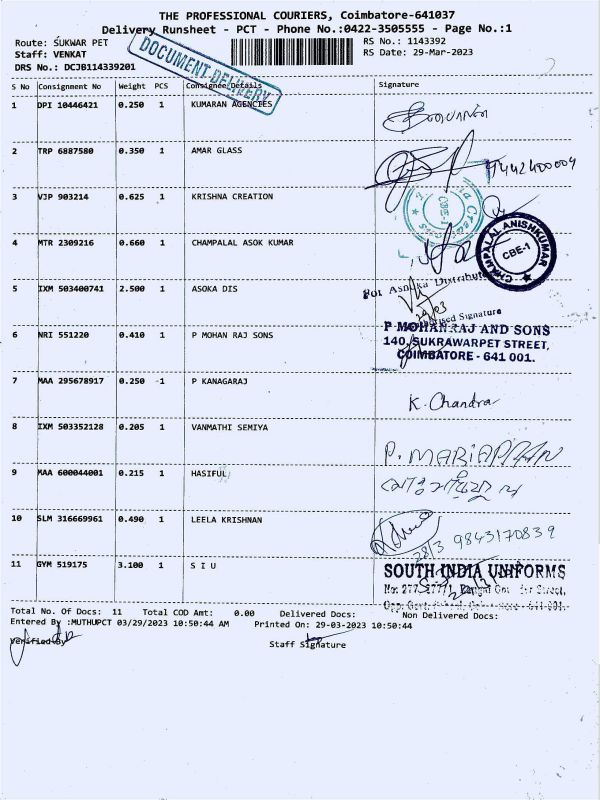 THE PROFESSIONAL COURIERS, Coimbatore-641037
Delivery Runsheet - PCT - Phone No.:0422-3505555 - Page No.:1
Route: SUKWAR PET
RS No.: 1143392
Staff: VENKAT
RS Date: 29-Mar-2023
DRS No.: DCJB114339201
DOCUMENT DELIVERY
S No Consignment No Weight PCS Consignee Details Signature
1 DPI 10446421 0.250 1 KUMARAN AGENCIES
2 TRP 6887580 0.350 1 AMAR GLASS
9442400004
3 VJP 903214 0.625 1 KRISHNA CREATION
CBE-1
4 MTR 2309216 0.660 1 CHAMPALAL ASOK KUMAR
CHAMPALAL ANISHKUMAR
CBE-1
5 IXM 503400741 2.500 1 ASOKA DIS
For Asoka Distributors
29/03
Authorised Signature
6 NRI 551220 0.410 1 P MOHAN RAJ SONS
P MOHANRAJ AND SONS
140, SUKRAWARPET STREET,
COIMBATORE - 641 001.
7 MAA 295678917 0.250 -1 P KANAGARAJ
K. Chandra
8 IXM 503352128 0.205 1 VANMATHI SEMIYA
P. MARIAPPAN
9 MAA 600044001 0.215 1 HASIFUL
10 SLM 316669961 0.490 1 LEELA KRISHNAN
28/3 9843170839
11 GYM 519175 3.100 1 S I U
SOUTH INDIA UNIFORMS
Total No. Of Docs: 11 Total COD Amt: 0.00 Delivered Docs: Non Delivered Docs:
Entered By :MUTHUPCT 03/29/2023 10:50:44 AM Printed On: 29-03-2023 10:50:44
Verified By
Staff Signature